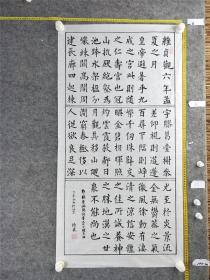 維貞觀六年孟
夏之月
皇帝避暑乎九
成之宮此則隨
之仁壽宮也冠
山抗殿絕壑為
池跨水架楹分
巖竦闕高閣周
建長廊四起棟
宇膠葛臺榭參
差仰視則迢遞
百尋下臨則崢
嶸千仞珠璧交
映金碧相暉照
灼雲霞蔽虧日
月觀其移山迴
澗窮泰極侈以
人從欲良足深
尤至於炎景流
金無鬱蒸之氣
微風徐動有淒
清之涼信安體
之佳所誠養神
之勝地漢之甘
泉不能尚也